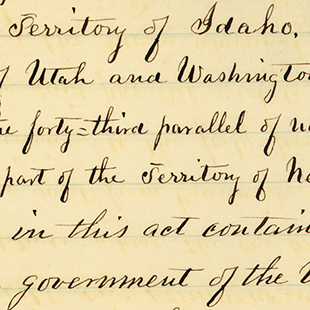 Territory of Idaho,
of Utah and Washington
forty=third parallel of
part of the Territory of
in this act contain
government of the